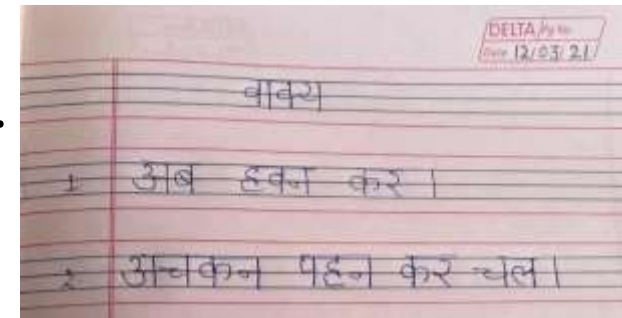 DELTA Pg No.
Date 12/03/21
वाक्य
1. अब हवन कर ।
2. अचकन पहन कर चल ।